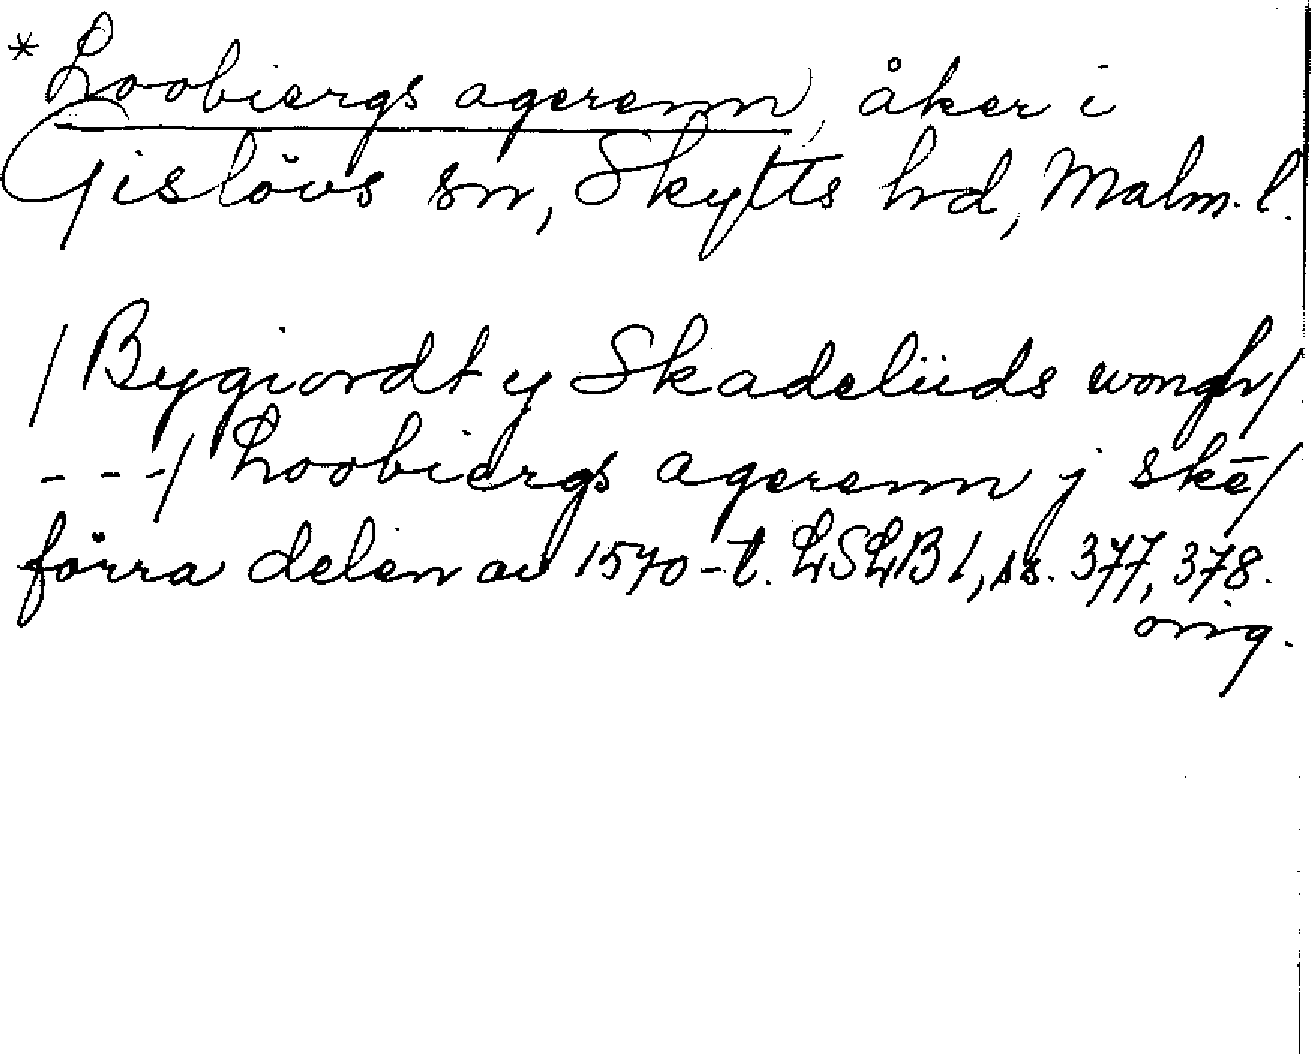 *Loobiergs agerenn, åker i
Gislövs sn, Skytts hd, Malm. l.
/ Bygiordt y Skadeliids wongh/
- - -/ Loobiergs agerenn j skē/
förra delen av 1570-t. LSLB 1, ss. 377, 378.
orig.